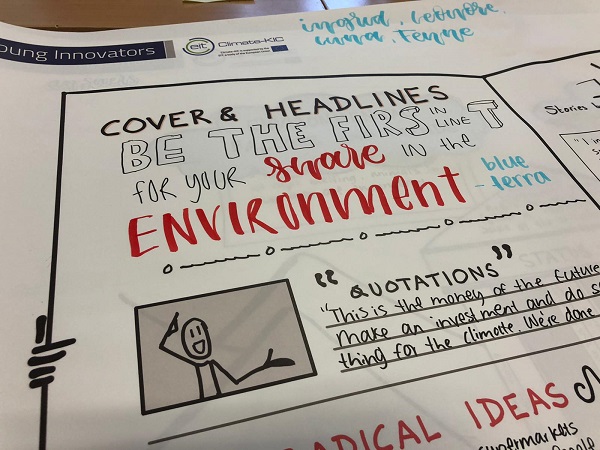 oung Innovators
eit Climate-KIC
Ingrid, Leonore,
Luna, Fenne
COVER & HEADLINES
BE THE FIRST IN LINE
FOR YOUR share IN the
ENVIRONMENT
blue
- terra
Stories
"QUOTATIONS"
"This is the money of the future
make an investment and do s
thing for the climate. We're done
RADICAL IDEAS
supermarkets